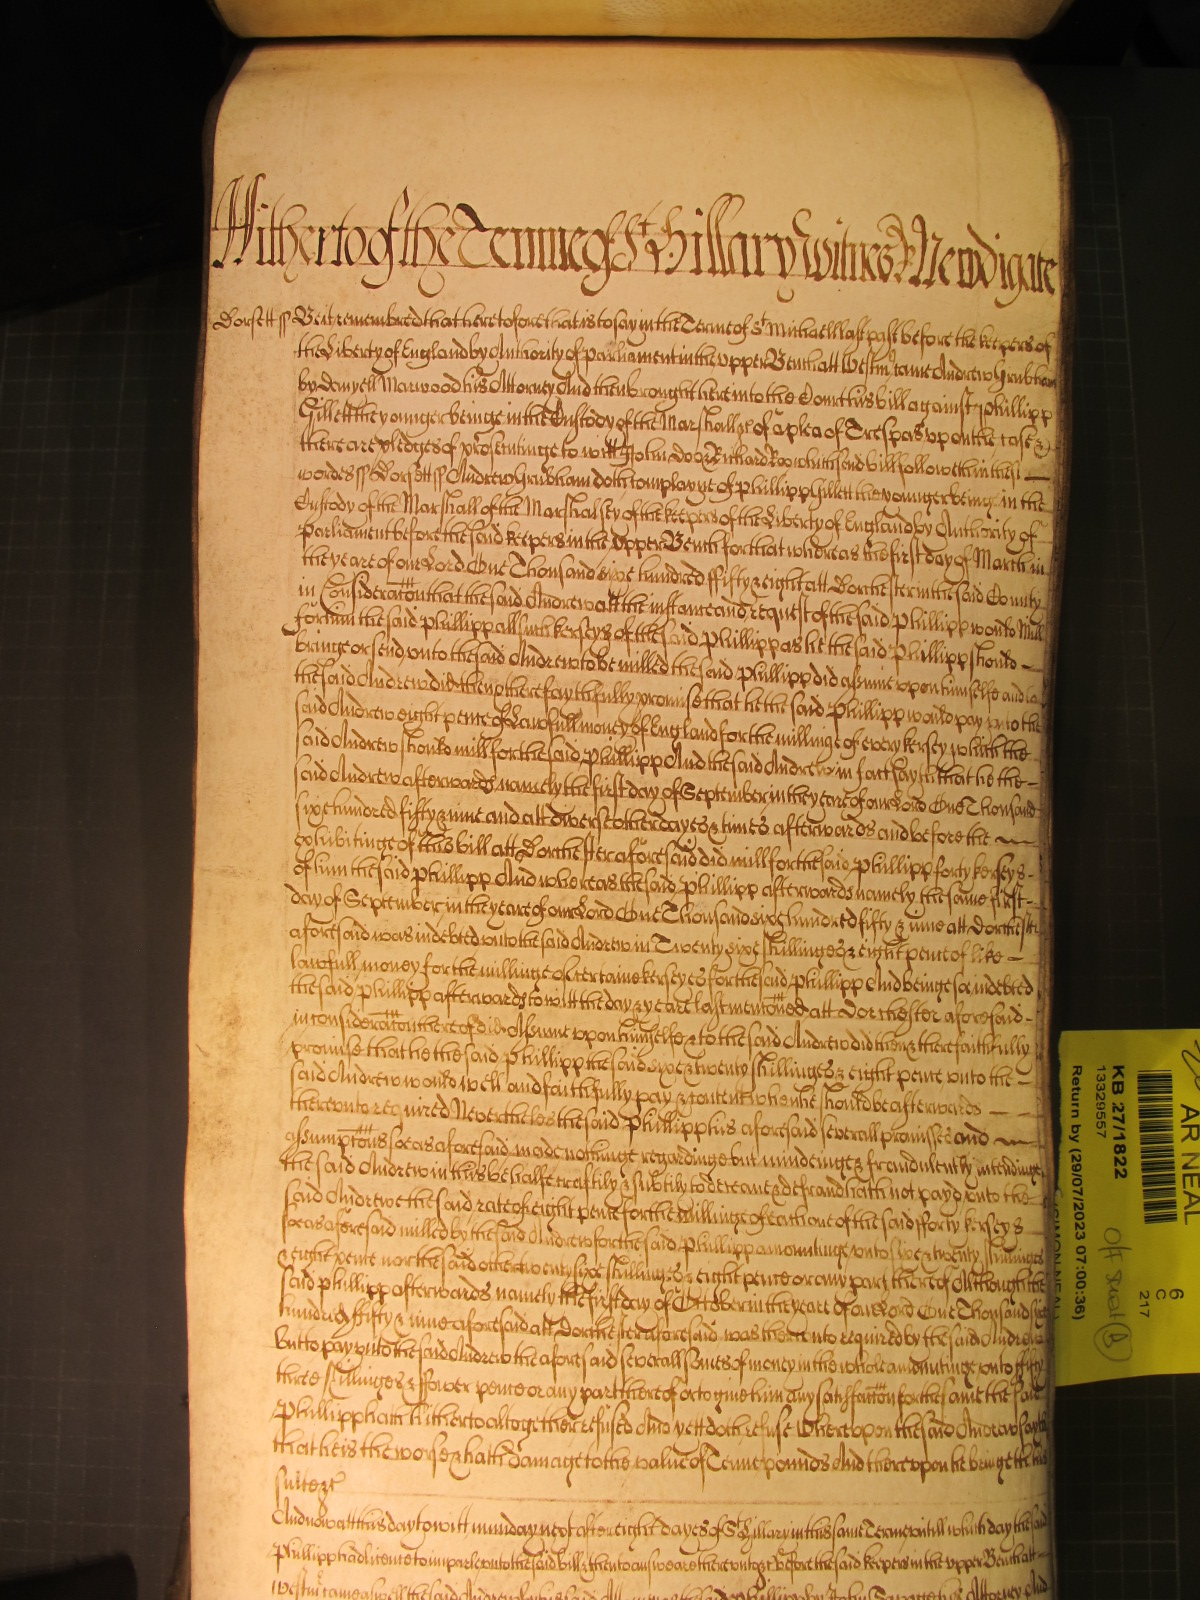 Hitherto of the Terme of St Hillary Witnes R Newdigate
Dorsett ss Be it remembred that heretofore that is to say in the Terme of St Michaell last past before the keepers of
the Liberty of England by Authority of parliament in the upper Bench att Westmr came Andrew Grubham
by Danyell Marwood his Attorney And then brought here into the Court his bill against Phillipp
Gillett the younger beinge in the Custody of the Marshall &c of a plea of Trespas upon the case &
there are pledges of prosecutinge to witt John Doo & Richard Roo which said bill followeth in these
wordes ss Dorsett ss Andrew Grubham doth complayne of Phillipp Gillett the younger beinge in the
Custody of the Marshall of the Marshalsey of the keepers of the Liberty of England by Authority of
Parliament before the said keepers in the upper Bench for that whereas the first day of March in
the yeare of our Lord One Thousand sixe hundred fifty & eight att Dorchester in the said County
in Consideracon that the said Andrew att the instance and request of the said Phillipp would Mill
for him the said Phillipp all such kerseys of the said Phillipp as he the said Phillipp should
bringe or send unto the said Andrew to be milled the said Phillipp did assume upon himselfe and to
the said Andrew did then & there faythfully promise that he the said Phillipp would pay unto the
said Andrew eight pence of Lawfull money of England for the millinge of every kersey which the
said Andrew should mill for the said Phillipp And the said Andrew in fact sayth that he the
said Andrew afterwards namely the first day of September in the yeare of our Lord One Thousand
sixe hundred fifty & nine and att divers other dayes & times afterwards and before the
exhibitinge of this bill att Dorchester aforesaid did mill for the said Phillipp forty kerseys
of him the said Phillipp And whereas the said Phillipp afterwards namely the same first
day of September in the yeare of our Lord One Thousand sixe hundred fifty & nine att Dorchester
aforesaid was indebted unto the said Andrew in Twenty sixe shillinges & eight pence of like
lawfull money for the millinge of certaine kerseyes for the said Phillipp And beinge soe indebted
the said Phillipp afterwards to witt the day & yeare last mentoned att Dorchester aforesaid
in consideracon thereof did Assume upon himselfe & to the said Andrew did then & there faithfully
promise that he the said Phillipp the said sixe & twenty shillinges & eight pence unto the
said Andrew would well and faithfully pay & content when he should be afterwards
thereunto required Neverthelesse the said Phillipp his aforesaid severall promisses and
assumptons soe as aforesaid made nothinge regardinge but mindeinge & fraudulently intendinge
the said Andrew in this behalfe craftily & subtily to deceave & defraud hath not payd unto the
said Andrewe the said rate of eight pence for the millinge of each one of the said fforty kerseys
soe as aforesaid milled by the said Andrew for the said Phillipp amountinge unto sixe & twenty shillinges
& eight pence nor the said other twenty sixe shillinges & eight pence or any part thereof Although the
said Phillipp afterwards namely the first day of October in the yeare of our Lord One Thousand sixe
hundred fifty & nine aforesaid att Dorchester aforesaid was thereunto required by the said Andrew
But to pay unto the said Andrew the aforesaid severall somes of money in the whole amountinge unto fifty
three shillinges & ffower pence or any part thereof or to give him any satisfaction for the same the said
Phillipp hath hitherto altogether refused And yett doth refuse Whereupon the said Andrew sayth
that he is the worse & hath damage to the value of Tenne pounds And thereupon he bringeth his
suite &c
And now att this day to witt munday next after eight dayes of St Hillary in this same Terme untill which day the said
Phillipp had licence to imparle unto the said bill & then to answeare thereunto &c before the said keepers in the upper Bench att
Westmr came aswell the said Andrew by his said Attorney as the said Phillipp by John Savage his Attorney And
AR NEAL
6
C
217
KB 27/1822
13329557
Return by (29/07/2023 07:00:36)